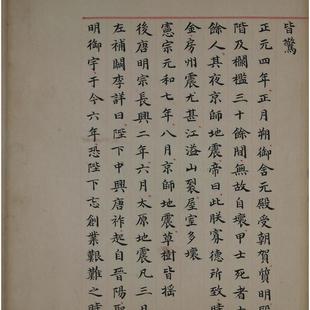 皆驚
正元四年正月朔御含元殿受朝賀質明殿
階及欄檻三十餘間無故自壞甲士死者十
餘人其夜京師地震帝曰此朕寡德所致時
金房州震尤甚江溢山裂屋室多壞
憲宗元和七年八月京師地震草樹皆搖
後唐明宗長興二年六月太原地震凡三日
左補闕李詳曰陛下中興唐祚起自晉陽聖
明御宇于今六年恐陛下忘創業艱難之時